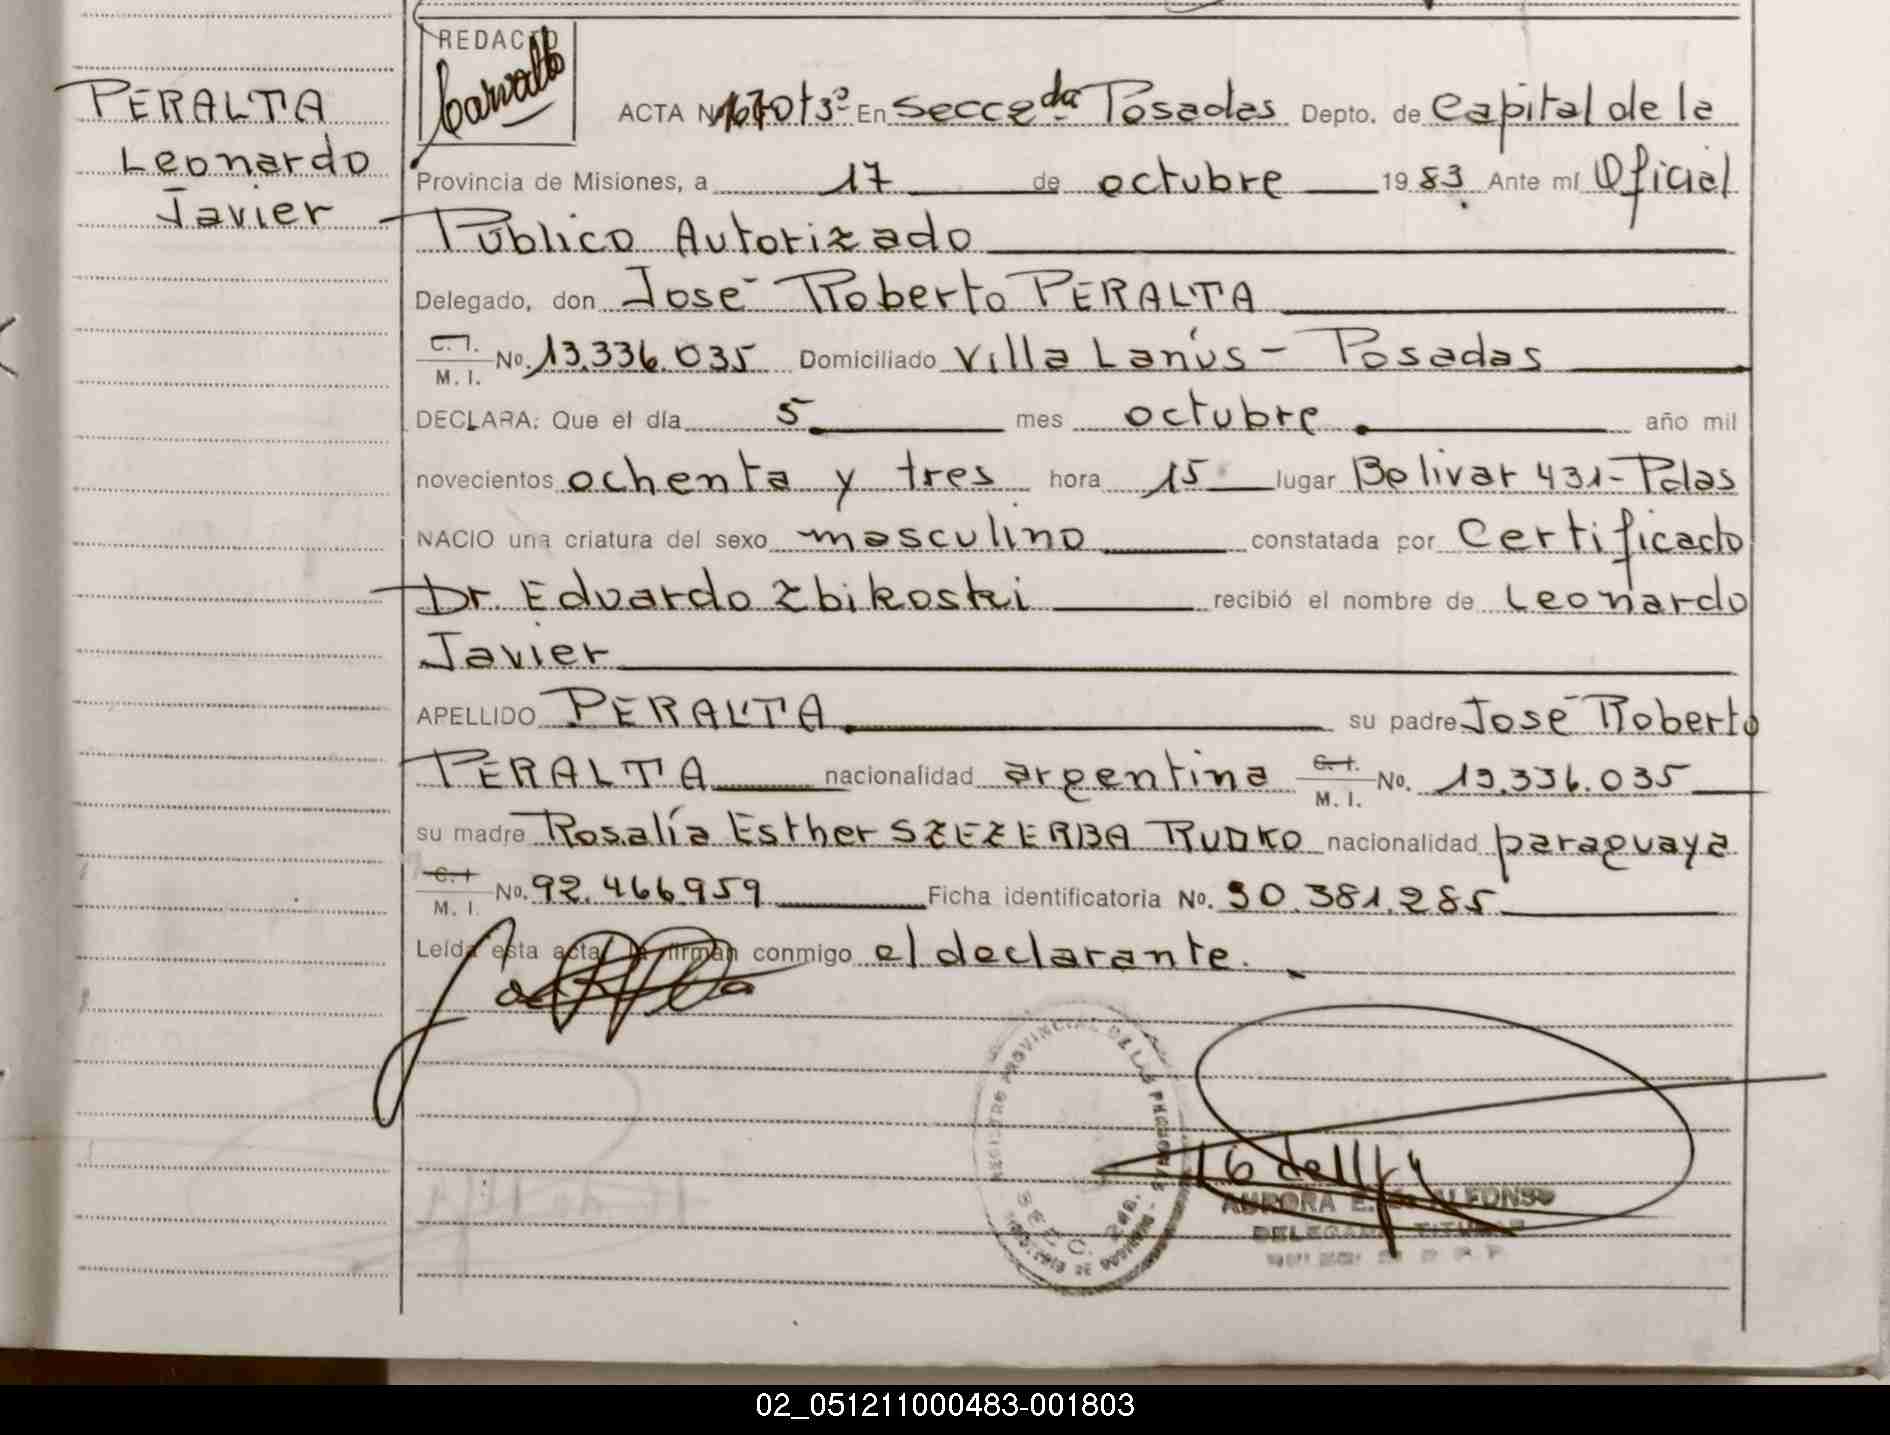 REDACTO
Carvallo
PERALTA
Leonardo
Javier
ACTA Nº 1670 t 3º En Secc 2da Posadas Depto. de Capital de la
Provincia de Misiones, a 17 de octubre 1983 Ante mí Oficial
Público Autorizado
Delegado, don José Roberto PERALTA
C.I. M. I. No. 13.336.035 Domiciliado Villa Lanús - Posadas
DECLARA: Que el día 5 mes octubre año mil
novecientos ochenta y tres hora 15 lugar Bolivar 431 - Pdas
NACIO una criatura del sexo masculino constatada por Certificado
Dr. Eduardo Zbikoski recibió el nombre de Leonardo
Javier
APELLIDO PERALTA su padre José Roberto
PERALTA nacionalidad argentina C.I. M. I. No. 13.336.035
su madre Rosalía Esther SZEZERBA RUDKO nacionalidad paraguaya
C.I. M. I. No. 92.466959 Ficha identificatoria No. 30.381.285
Leída esta acta la firman conmigo el declarante.
REGISTRO PROVINCIAL DE LAS PERSONAS
SECC. 2da.
AURORA E. ALFONSO
DELEGADA TITULAR
02_051211000483-001803